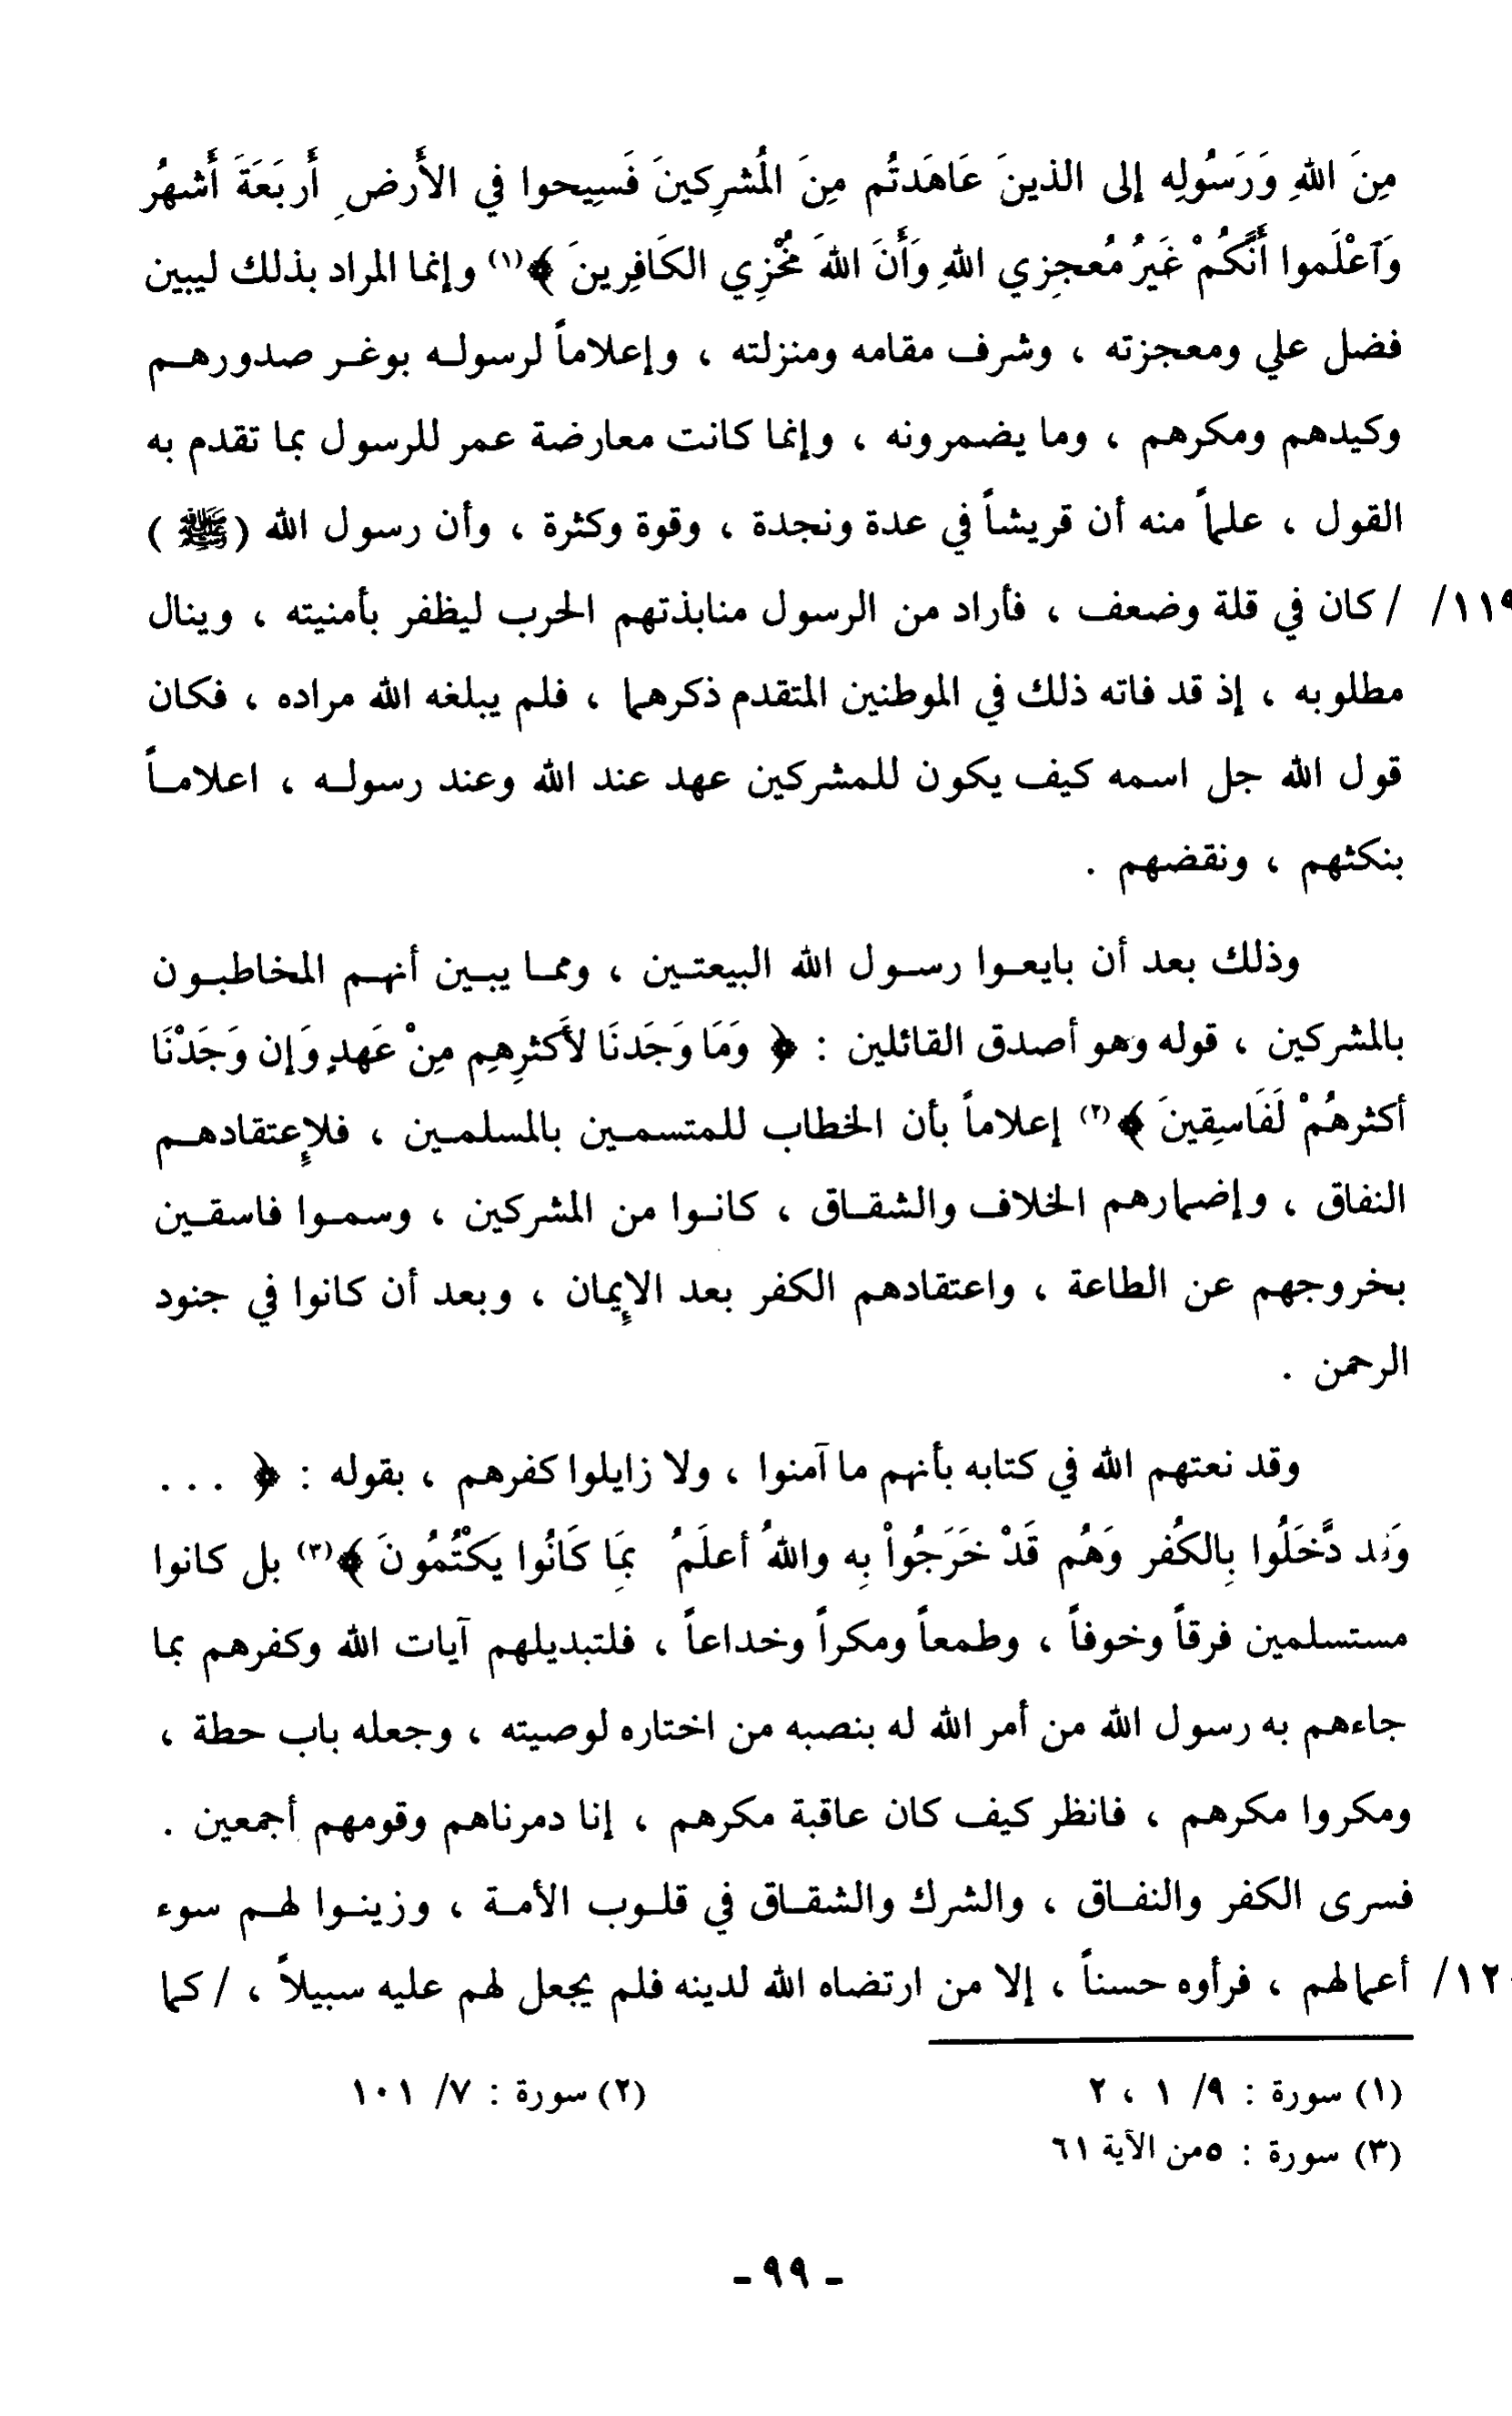 مِنَ اللهِ وَرَسُولِه إلى الذينَ عَاهَدتُم مِنَ المُشرِكينَ فَسِيحوا في الأَرضِ أَربَعَةَ أَشهُر
وَآعْلَموا أَنَّكُمْ غَيرُ مُعجِزي اللهِ وَأَنَ اللهَ مُخْزِي الكَافِرِينَ ﴾(١) وإنما المراد بذلك ليبين
فضل علي ومعجزته ، وشرف مقامه ومنزلته ، وإعلاماً لرسوله بوغر صدورهم
وكيدهم ومكرهم ، وما يضمرونه ، وإنما كانت معارضة عمر للرسول بما تقدم به
القول ، علماً منه أن قريشاً في عدة ونجدة ، وقوة وكثرة ، وأن رسول الله (ﷺ)
١١٩/ / كان في قلة وضعف ، فأراد من الرسول منابذتهم الحرب ليظفر بأمنيته ، وينال
مطلوبه ، إذ قد فاته ذلك في الموطنين المتقدم ذكرهما ، فلم يبلغه الله مراده ، فكان
قول الله جل اسمه كيف يكون للمشركين عهد عند الله وعند رسوله ، اعلاماً
بنكثهم ، ونقضهم .
وذلك بعد أن بايعوا رسول الله البيعتين ، ومما يبين أنهم المخاطبون
بالمشركين ، قوله وهو أصدق القائلين : ﴿ وَمَا وَجَدنَا لأَكثرِهِم مِنْ عَهدٍ وَإن وَجَدْنَا
أكثرهُمْ لَفَاسِقِينَ ﴾(٢) إعلاماً بأن الخطاب للمتسمين بالمسلمين ، فلإعتقادهم
النفاق ، وإضمارهم الخلاف والشقاق ، كانوا من المشركين ، وسموا فاسقين
بخروجهم عن الطاعة ، واعتقادهم الكفر بعد الإيمان ، وبعد أن كانوا في جنود
الرحمن .
وقد نعتهم الله في كتابه بأنهم ما آمنوا ، ولا زايلوا كفرهم ، بقوله : ﴿ . . .
وَقد دَّخَلُوا بِالكُفر وَهُم قَدْ خَرَجُواْ بِه واللهُ أعلَمُ بَمِا كَانُوا يَكْتُمُونَ ﴾(٣) بل كانوا
مستسلمين فرقاً وخوفاً ، وطمعاً ومكراً وخداعاً ، فلتبديلهم آيات الله وكفرهم بما
جاءهم به رسول الله من أمر الله له بنصبه من اختاره لوصيته ، وجعله باب حطة ،
ومكروا مكرهم ، فانظر كيف كان عاقبة مكرهم ، إنا دمرناهم وقومهم أجمعين .
فسرى الكفر والنفاق ، والشرك والشقاق في قلوب الأمة ، وزينوا لهم سوء
١٢٠/ أعمالهم ، فرأوه حسناً ، إلا من ارتضاه الله لدينه فلم يجعل لهم عليه سبيلاً ، / كما
(١) سورة : ٩/ ١ ، ٢
(٢) سورة : ٧/ ١٠١
(٣) سورة : ٥ من الآية ٦١
- ٩٩ -